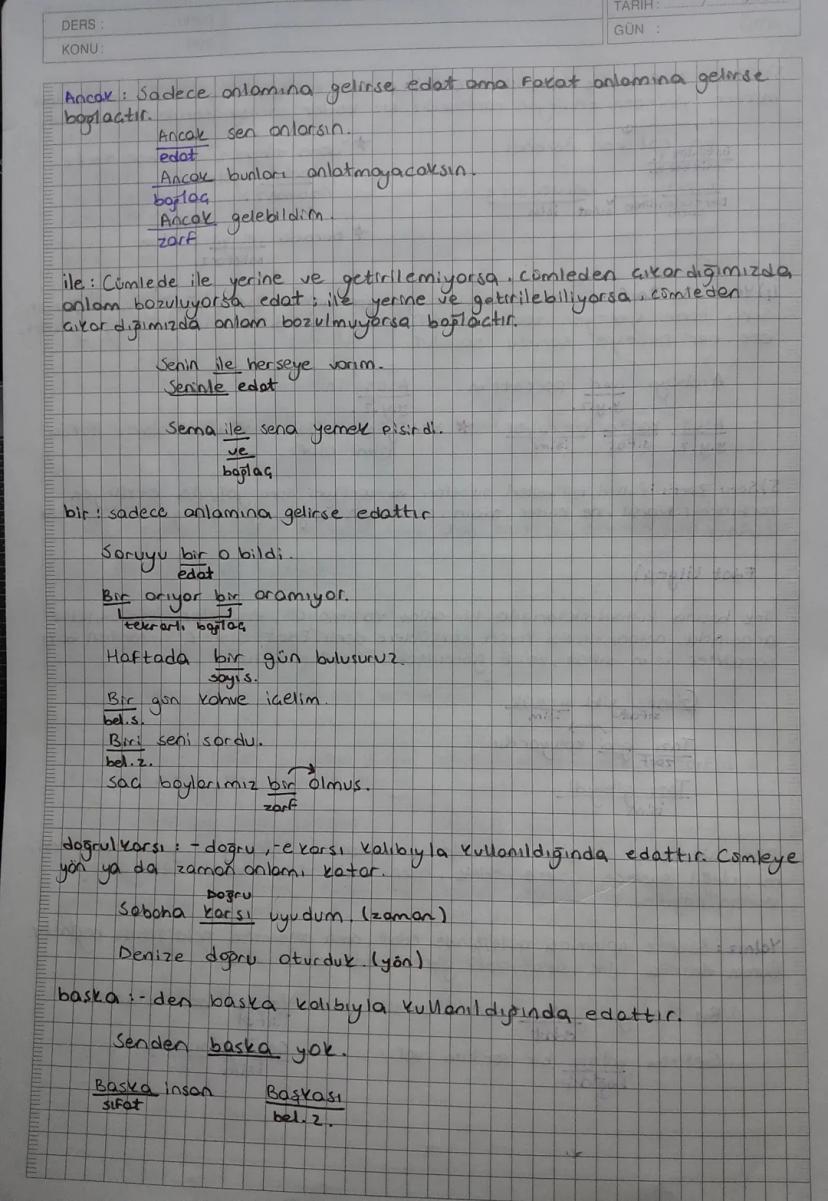 DERS :
TARİH :
KONU:
GÜN :
Ancak : Sadece anlamına gelirse edat ama Fakat anlamına gelirse
bağlaçtır.
Ancak sen anlarsın.
edat
Ancak bunları anlatmayacaksın.
bağlaç
Ancak gelebildim.
zarf
ile : Cümlede ile yerine ve getirilemiyorsa, cümleden çıkardığımızda
anlam bozuluyorsa edat ; ile yerine ve getirilebiliyorsa, cümleden
çıkardığımızda anlam bozulmuyorsa bağlaçtır.
Senin ile herseye varım.
Seninle edat
Sema ile sena yemek pisirdi.
ve
bağlaç
bir : sadece anlamına gelirse edattır
Soruyu bir o bildi.
edat
Bir arıyor bir aramıyor.
tekrarlı bağlaç
Haftada bir gün bulusuruz.
sayı s.
Bir gün kahve içelim.
bel.s.
Biri seni sordu.
bel.z.
saç boylarımız bir olmus.
zarf
doğru/karsı : -doğru, -e karsı kalıbıyla kullanıldığında edattır. Cümleye
yön ya da zaman anlamı katar.
Doğru
Sabaha karsı uyudum. (zaman)
Denize doğru oturduk. (yön)
baska : -den baska kalıbıyla kullanıldığında edattır.
Senden baska yok.
Baska insan Başkası
sıfat bel.z.